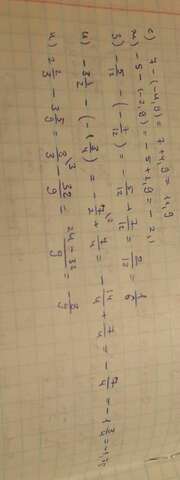 е) 7 - (-4,9) = 7 + 4,9 = 11,9
ж) -5 - (-2,9) = -5 + 2,9 = -2,1
з) -5/12 - (-7/12) = -5/12 + 7/12 = 2/12 = 1/6
и) -3 1/2 - (-1 3/4) = -7/2 + 7/4 = -14/4 + 7/4 = -7/4 = -1 3/4 = -1,75
к) 2 2/3 - 3 5/9 = 8/3 - 32/9 = 24-32/9 = -8/9